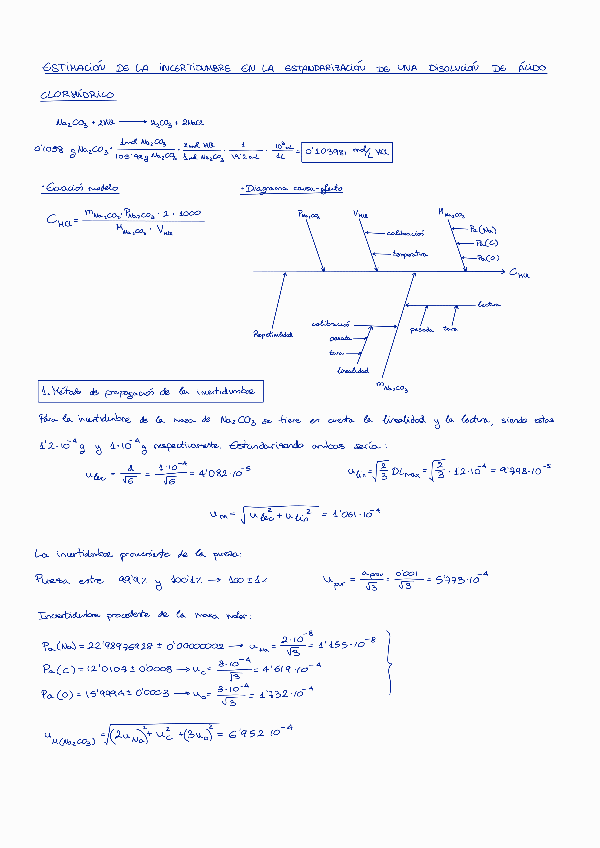 ESTIMACIÓN DE LA INCERTIDUMBRE EN LA ESTANDARIZACIÓN DE UNA DISOLUCIÓN DE ÁCIDO
CLORHÍDRICO
Na₂CO₃ + 2HCl → H₂CO₃ + 2NaCl
0'1058 g Na₂CO₃ · 1 mol Na₂CO₃ / 105'98 g Na₂CO₃ · 2 mol HCl / 1 mol Na₂CO₃ · 1 / 19'2 mL · 10³ mL / 1L = 0'10398, mol/L HCl
· Ecuación modelo
· Diagrama causa-efecto
C_HCl = m_Na₂CO₃ · P_Na₂CO₃ · 2 · 1000 / M_Na₂CO₃ · V_HCl
P_Na₂CO₃
V_HCl
M_Na₂CO₃
calibración
temperatura
Pa(Na)
Pa(C)
Pa(O)
C_HCl
Repetibilidad
calibración
pesada
tara
linealidad
lectura
pesada
tara
m_Na₂CO₃
1. Método de propagación de la incertidumbre
Para la incertidumbre de la masa de Na₂CO₃ se tiene en cuenta la linealidad y la lectura, siendo estas
1'2·10⁻⁴ g y 1·10⁻⁴ g respectivamente. Estandarizando ambas sería:
u_lec = a/√6 = 1·10⁻⁴/√6 = 4'082·10⁻⁵
u_lin = √(2/3) DL_max = √(2/3) · 1'2·10⁻⁴ = 9'798·10⁻⁵
u_m = √(u_lec² + u_lin²) = 1'061·10⁻⁴
La incertidumbre proveniente de la pureza:
Pureza entre 99'9% y 100'1% → 100 ± 1%
u_pur = a_prov/√3 = 0'001/√3 = 5'773·10⁻⁴
Incertidumbre procedente de la masa molar:
Pa(Na) = 22'98976928 ± 0'00000002 → u_Na = 2·10⁻⁸/√3 = 1'155·10⁻⁸
Pa(C) = 12'0107 ± 0'0008 → u_C = 8·10⁻⁴/√3 = 4'619·10⁻⁴
Pa(O) = 15'9994 ± 0'0003 → u_O = 3·10⁻⁴/√3 = 1'732·10⁻⁴
u_M(Na₂CO₃) = √((2u_Na)² + u_C² + (3u_O)²) = 6'952·10⁻⁴